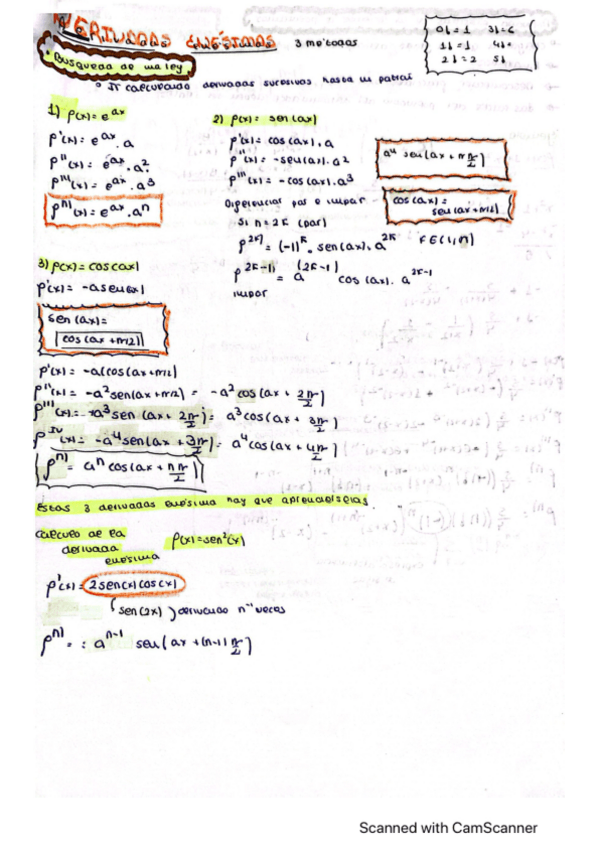 DERIVADAS ENÉSIMAS 3 metodos
0! = 1 3! = 6
1! = 1 4! =
2! = 2 5!
• Busqueda de una ley
• Ir calculando derivadas sucesivas hasta un patrón
1) f(x) = e^ax
f'(x) = e^ax · a
f''(x) = e^ax · a²
f'''(x) = e^ax · a³
f^n)(x) = e^ax · a^n
2) f(x) = sen(ax)
f'(x) = cos(ax) · a
f''(x) = -sen(ax) · a²
f'''(x) = -cos(ax) · a³
Diferenciar par e impar
Si n = 2k (par)
f^2k) = (-1)^k · sen(ax) · a^2k
f^2k-1) = a^(2k-1) cos(ax) · a^2k-1
impar
a^n sen(ax + nπ/2)
cos(ax) =
sen(ax + π/2)
3) f(x) = cos(ax)
f'(x) = -a sen(ax)
sen(ax) =
cos(ax + π/2)
f'(x) = -a(cos(ax + π/2)
f''(x) = -a² sen(ax + π/2) = -a² cos(ax + 2π/2)
f'''(x) = -a³ sen(ax + 2π/2) = a³ cos(ax + 3π/2)
f^IV(x) = -a⁴ sen(ax + 3π/2) = a⁴ cos(ax + 4π/2)
f^n) = a^n cos(ax + nπ/2)
Estas 3 derivadas enésima hay que aprenderselas.
Calculo de la
derivada
enésima
f(x) = sen²(x)
f'(x) = 2sen(x)cos(x)
(sen(2x)) derivando n⁻¹ veces
f^n) = : a^n-1 sen(ax + (n-1)π/2)
Scanned with CamScanner